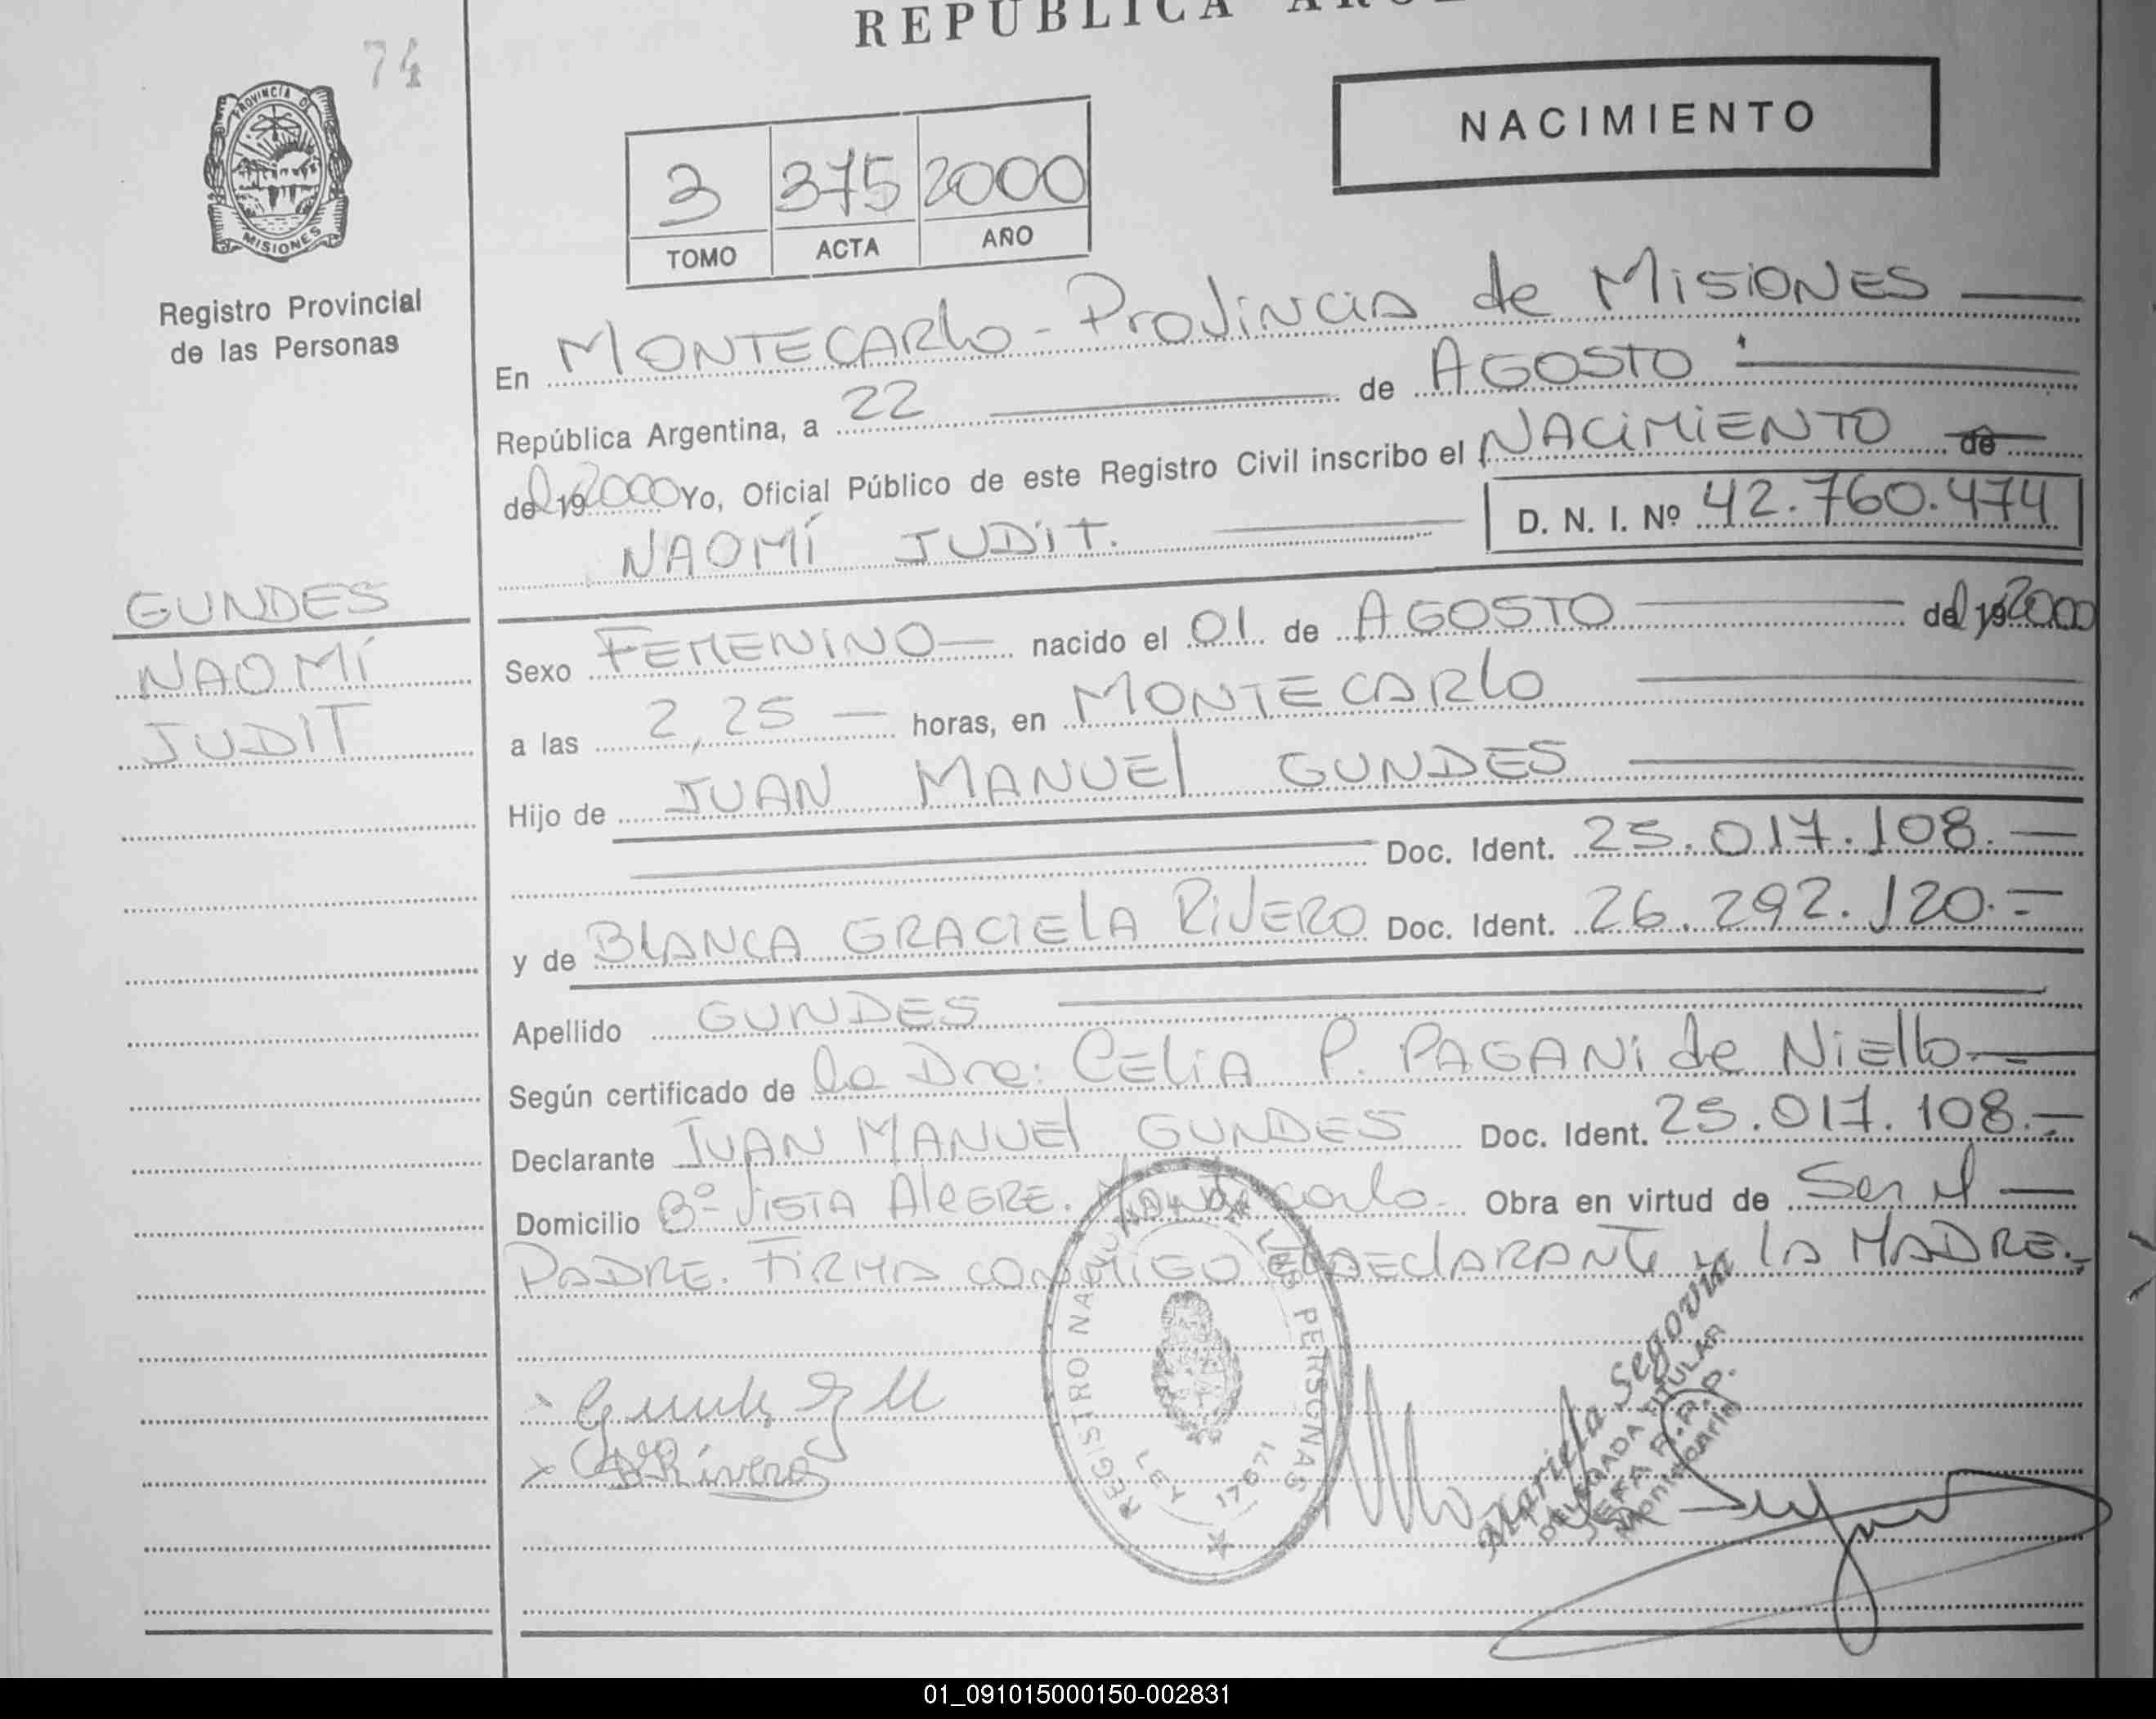 REPÚBLICA
74
PROVINCIA D
MISIONES
Registro Provincial
de las Personas
NACIMIENTO
3 375 2000
TOMO ACTA AÑO
En MONTECARLO - PROVINCIA de MISIONES
República Argentina, a 22 de AGOSTO
del 19 2000 Yo, Oficial Público de este Registro Civil inscribo el NACIMIENTO de
NAOMÍ JUDIT. D. N. I. Nº 42.760.474
GUNDES
NAOMÍ
JUDIT
Sexo FEMENINO nacido el 01 de AGOSTO del 19 2000
a las 2,25 horas, en MONTECARLO
Hijo de JUAN MANUEL GUNDES
Doc. Ident. 25.017.108.
y de BLANCA GRACIELA RIVERO Doc. Ident. 26.292.120.
Apellido GUNDES
Según certificado de la Dra: CELIA P. PAGANI de Niello
Declarante JUAN MANUEL GUNDES Doc. Ident. 25.017.108.
Domicilio Bº VISTA ALEGRE. Montecarlo Obra en virtud de Ser el
PADRE. FIRMA CONMIGO EL DECLARANTE y LA MADRE.
REGISTRO NA LAS PERSONAS
LEY 17671
Rivero
Mariela Segovia
DELEGADA TITULAR
JEFA R.P.P.
Montecarlo
01_091015000150-002831